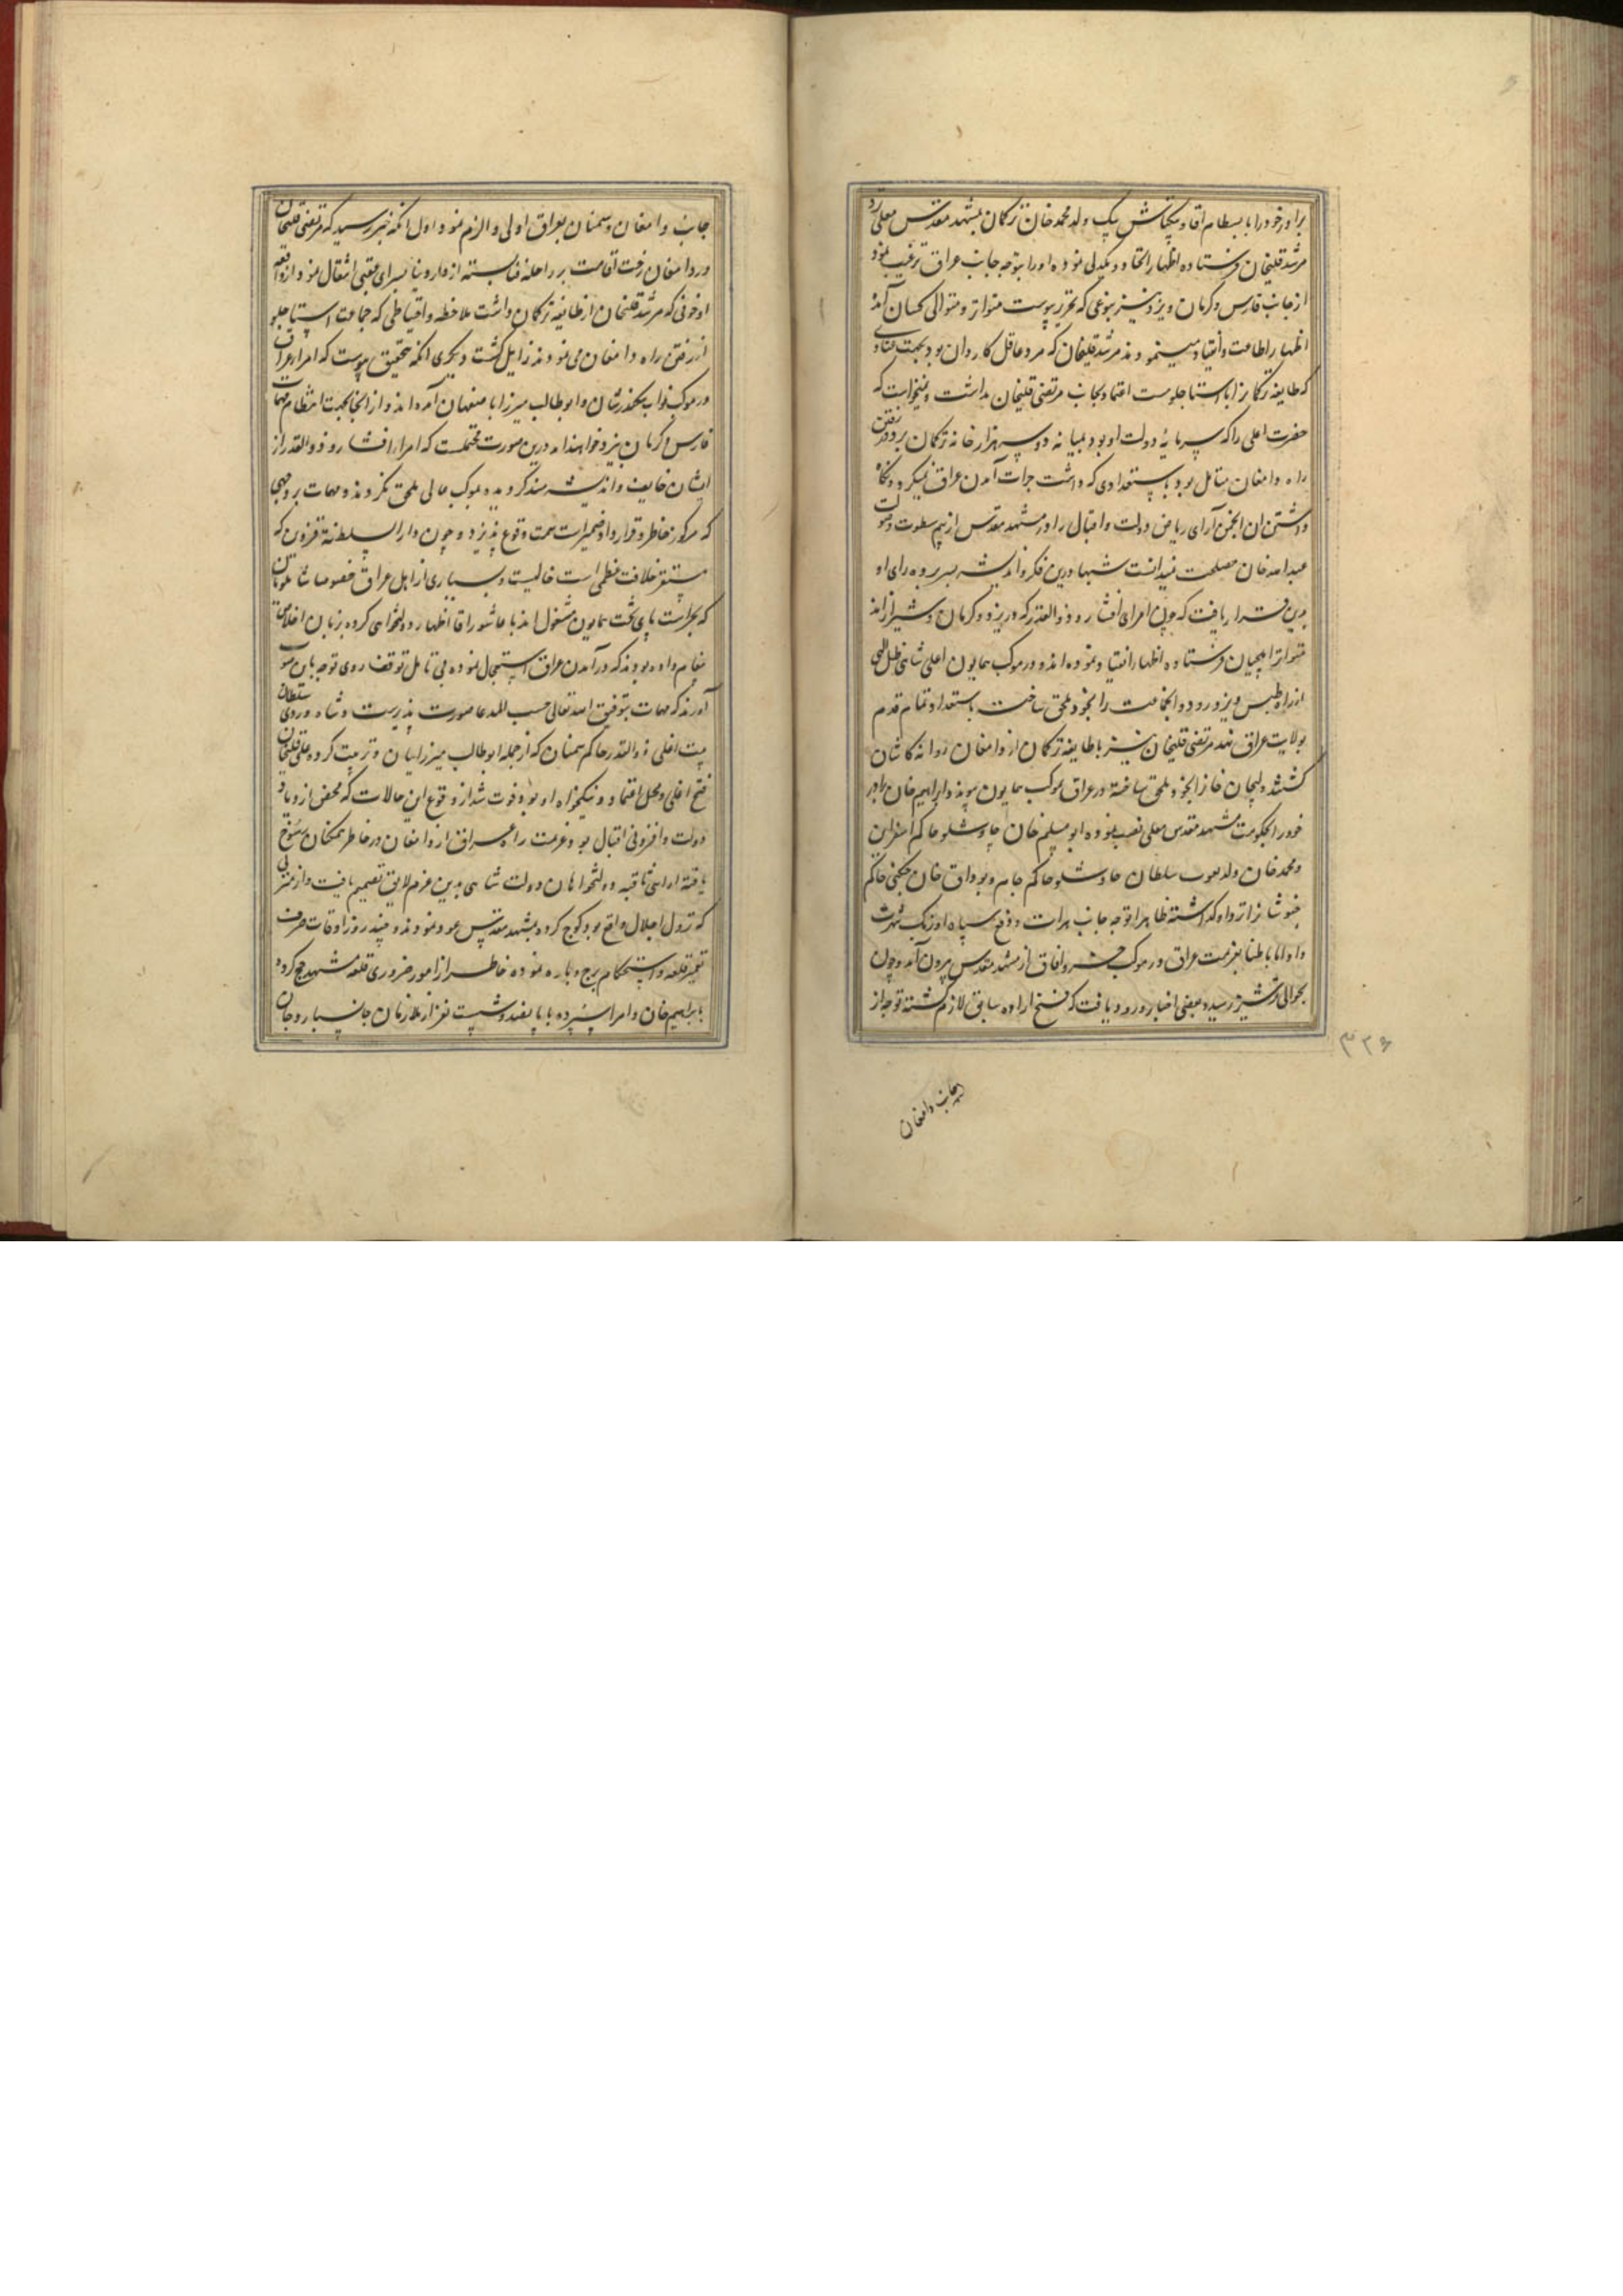 برادر خود را با بسطام اقا و بیکتاش بیک ولد محمد خان ترکمان بمشهد مقدس معلی نزد
مرشد قلیخان فرستاده اظهار اتحاد و یکدلی نموده او را بتوجه جانب عراق ترغیب نمود
از جانب فارس و کرمان و یزد نیز بنوعی که تحریر پیوست متواتر و متوالی کسان آمده
اظهار اطاعت و انقیاد مینمودند مرشد قلیخان که مرد عاقل کاردان بود بجهت
که طایفه ترکمانرا با استاجلوست اعتماد بجانب مرتضی قلیخان نداشت و نمیخواست که
حضرت اعلی را که سرمایهٔ دولت او بود بمیانه دو سه هزار خانه ترکمان برد و در رفتن
راه دامغان متامل بود با ستعدادی که داشت جرات آمدن عراق نمیکرد و نگاه
داشتن ان انجمن آرای ریاض دولت و اقبال را در مشهد مقدس از بیم سطوت و صولت
عبدالله خان مصلحت نمیدانست شبها درین فکر و اندیشه بسر برده رای او
بدین قرار یافت که چون امرای افشار و ذوالقدر که در یزد و کرمان و شیرازند
متواتر ایلچیان فرستاده اظهار انقیاد نموده اند در موکب همایون اعلی شاهی ظل اللهی
از راه طبس و یزد رود و انجماعت را بخود ملحق ساخت با ستعداد تمام قدم
بولایت عراق نهد مرتضی قلیخان نیز با طایفه ترکمان از دامغان روانه کاشان
گشته ولیجان خانرا بخود ملحق ساخته در عراق بموکب همایون پیوندد ابراهیم خان برادر
خود را بحکومت مشهد مقدس معلی نصب نموده ابو مسلم خان چاوشلو حاکم اسفراین
و محمد خان ولد صوب سلطان چاوشلو حاکم جام و بوداق خان چکنی حاکم
خبوشانرا نزد او گذاشته ظاهرا توجه جانب هرات و دفع سپاه اوزبک شهرت
داد اما باطنا بعزیمت عراق در موکب خسرو افاق از مشهد مقدس بیرون آمد و چون
بحوالی ترشیز رسید بعضی اخبار ورود یافت که فسخ اراده سابق لازم گشته توجه از
جانب دامغان
۳۲۶
جانب دامغان و سمنان بعراق اولی و الزم نمود اول انکه خبر رسید که مرتضی قلیخان
در دامغان رخت اقامت بر راحله فنا بسته از دار دنیا بسرای عقبی انتقال نمود از واقعه
او خوفی که مرشد قلیخان از طایفه ترکمان داشت ملاحظه و احتیاطی که جماعت استاجلو
از رفتن راه دامغان می نمودند زایل گشت دیگری انکه تحقیق پیوست که امراء عراق
در موکب نواب سکندر شان و ابو طالب میرزا با صفهان آمده اند و از انجا بجهت انتظام مهمات
فارس و کرمان بیزد خواهند امد درین صورت محتملست که امراء افشار و ذوالقدر از
ایشان خایف و اندیشه مند گردیده بموکب عالی ملحق نگردند و مهمات بر وجهی
که مرکوز خاطر و قرار داد ضمیراست سمت وقوع نپذیرد و چون دار السلطنة قزوین که
مستقر خلافت عظمی است خالیست و بسیاری از اهل عراق خصوصا شاملویان
که بحراست پای تخت همایون مشغول اند با عاشور اقا اظهار دولتخواهی کرده بزبان اخلاص
پیغام داده بودند که در آمدن عراق استعجال نموده بی تامل توقف روی توجه بان صوب
آورند که مهمات بتوفیق الله تعالی حسب المدعا صورت پذیرست و شاه وردی سلطان
ذوالقدر حاکم سمنان که از جمله ابو طالب میرزاییان و تربیت کرده علیقلیخان
فتح اغلی و محل اعتماد و نیکخواه او بود فوت شد از وقوع این حالات که محض ازدیاد
دولت و افزونی اقبال بود عزیمت راه عراق از دامغان در خاطر همگنان رسوخ
یافته اراء ثاقبه دولتخواهان دولت شاهی بدین عزم لایق تصمیم یافت و از منزلی
که نزول اجلال واقع بود کوچ کرده بمشهد مقدس عود نمودند و چند روز اوقات صرف
تعمیر قلعه و استحکام برج و باره نموده خاطر از امور ضروری قلعه مشهد جمع کرده
بابراهیم خان و امرا سپرده با پانصد و شصت نفر از ملازمان جانسپار و جان